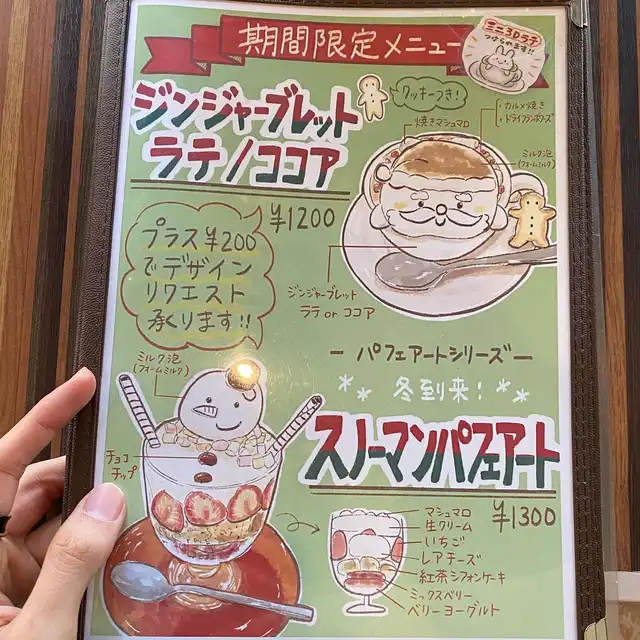 期間限定メニュー
ミニ3Dラテ
つけられます!!
ジンジャーブレット
ラテ/ココア
クッキーつき!
焼きマシュマロ
・カルメ焼き
・ドライフランボワーズ
ミルク泡
(フォームミルク)
¥1200
プラス¥200
でデザイン
リクエスト
承ります!!
ジンジャーブレット
ラテ or ココア
ーパフェアートシリーズー
冬到来!
スノーマンパフェアート
¥1300
ミルク泡
(フォームミルク)
チョコ
チップ
マシュマロ
生クリーム
いちご
レアチーズ
紅茶シフォンケーキ
ミックスベリー
ベリーヨーグルト